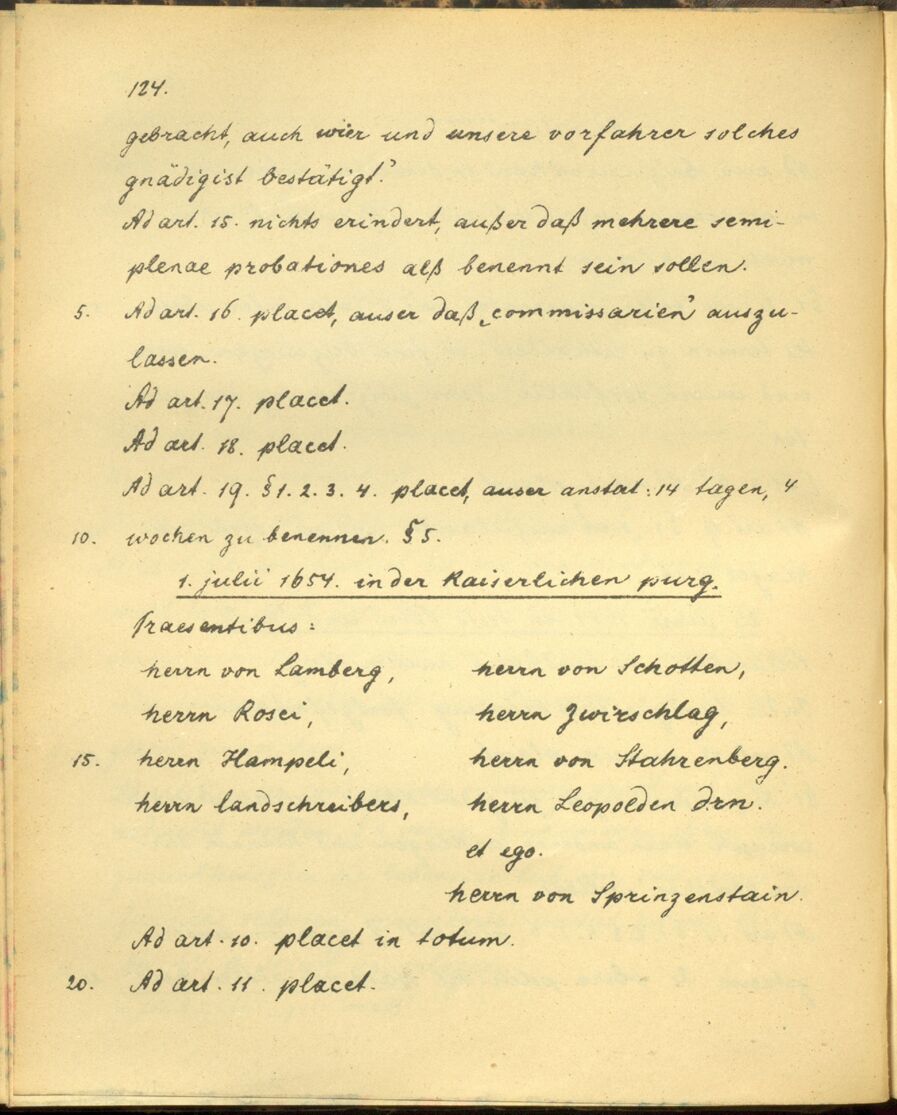 124.
gebracht, auch wier und unsere vorfahrer solches
gnädigist bestätigt."
Ad art. 15. nichts erindert, außer daß mehrere semi-
plenae probationes alß benennt sein sollen.
5. Ad art. 16. placet, auser daß „commissarien" auszu-
lassen.
Ad art. 17. placet.
Ad art. 18. placet.
Ad art. 19. § 1. 2. 3. 4. placet, auser anstat: 14 tagen, 4
10. wochen zu benennen. § 5.
1. julii 1654. in der Kaiserlichen purg.
Praesentibus:
herrn von Lamberg, herrn von Schotten,
herrn Rosei, herrn Zwirschlag,
15. herrn Hampeli, herrn von Stahrenberg.
herrn landschreibers, herrn Leopolden drn.
et ego.
herrn von Sprinzenstain.
Ad art. 10. placet in totum.
20. Ad art. 11. placet.